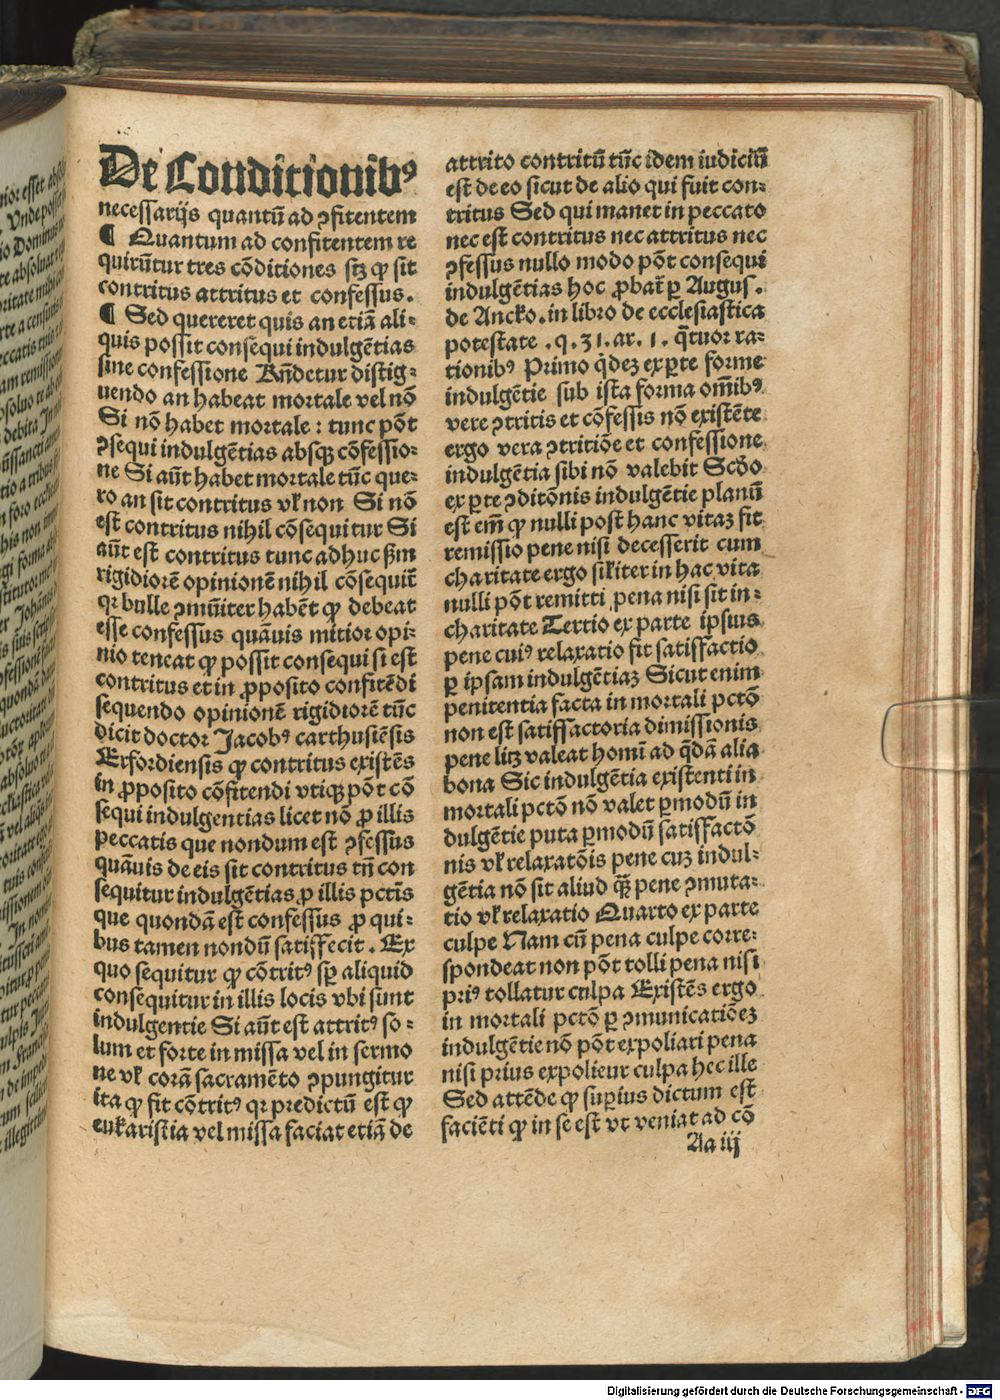 De Conditionibꝰ
necessarijs quantū ad ↄfitentem
¶ Quantum ad confitentem re
quirūtur tres cōditiones sꝫ ꝙ sit
contritus attritus et confessus.
¶ Sed quereret quis an etiā ali⸗
quis possit consequi indulgētias
sine confessione Rn̄detur distig⸗
uendo an habeat mortale vel nō
Si nō habet mortale : tunc pōt
ↄsequi indulgētias absqꝫ cōfessio⸗
ne Si aūt habet mortale tūc que⸗
ro an sit contritus vƚ non Si nō
est contritus nihil cōsequitur Si
aūt est contritus tunc adhuc ẜm
rigidiorē opinionē nihil cōsequit̄
qꝛ bulle ↄmūiter habēt ꝙ debeat
esse confessus quāuis mitior opi⸗
nio teneat ꝙ possit consequi si est
contritus et in ꝓposito confitēdi
sequendo opinionē rigidiorē tūc
dicit doctor Jacobꝰ carthusiēsis
Erfordiensis ꝙ contritus existēs
in ꝓposito cōfitendi vtiqꝫ pōt cō
sequi indulgentias licet nō ꝓ illis
peccatis que nondum est ↄfessus
quāuis de eis sit contritus tn̄ con
sequitur indulgētias ꝓ illis pctīs
que quondā est confessus ꝓ qui⸗
bus tamen nondū satisfecit. Ex
quo sequitur ꝙ cōtritꝰ sꝑ aliquid
consequitur in illis locis vbi sunt
indulgentie Si aūt est attritꝰ so⸗
lum et forte in missa vel in sermo
ne vƚ corā sacramēto ↄpungitur
ita ꝙ fit cōtritꝰ qꝛ predictū est ꝙ
eukaristia vel missa faciat etiā de
attrito contritū tūc idem iudiciū
est de eo sicut de alio qui fuit con⸗
tritus Sed qui manet in peccato
nec est contritus nec attritus nec
ↄfessus nullo modo pōt consequi
indulgētias hoc ꝓbat̄ ꝑ Augus.
de Ancko. in libro de ecclesiastica
potestate .q. 31. ar. 1. q̄tuor ra⸗
tionibꝰ Primo q̇deꝫ ex ꝑte forme
indulgētie sub ista forma om̄ibꝰ
vere ↄtritis et cōfessis nō existēte
ergo vera ↄtritiōe et confessione
indulgētia sibi nō valebit Scḋo
ex ꝑte ↄditōnis indulgētie planū
est em̄ ꝙ nulli post hanc vitaꝫ fit
remissio pene nisi decesserit cum
charitate ergo siƚiter in hac vita
nulli pōt remitti pena nisi sit in⸗
charitate Tertio ex parte ipsius
pene cuiꝰ relaxatio fit satisfactio
ꝑ ipsam indulgētiaꝫ Sicut enim
penitentia facta in mortali pctō
non est satisfactoria dimissionis
pene licꝫ valeat homī ad q̄dā alia
bona Sic indulgētia existenti in
mortali pctō nō valet ꝑ modū in
dulgētie puta ꝑ modū satisfactō
nis vƚ relaxatōis pene cuꝫ indul⸗
gētia nō sit aliud q̄ꝫ pene ↄmuta⸗
tio vƚ relaxatio Quarto ex parte
culpe Nam cū pena culpe corre⸗
spondeat non pōt tolli pena nisi
priꝰ tollatur culpa Existēs ergo
in mortali pctō ꝑ ↄmunicatiōeꝫ
indulgētie nō pōt expoliari pena
nisi prius expolietur culpa hec ille
Sed attēde ꝙ suꝑius dictum est
faciēti ꝙ in se est vt veniat ad cō
Aa iij
Digitalisierung gefördert durch die Deutsche Forschungsgemeinschaft - DFG